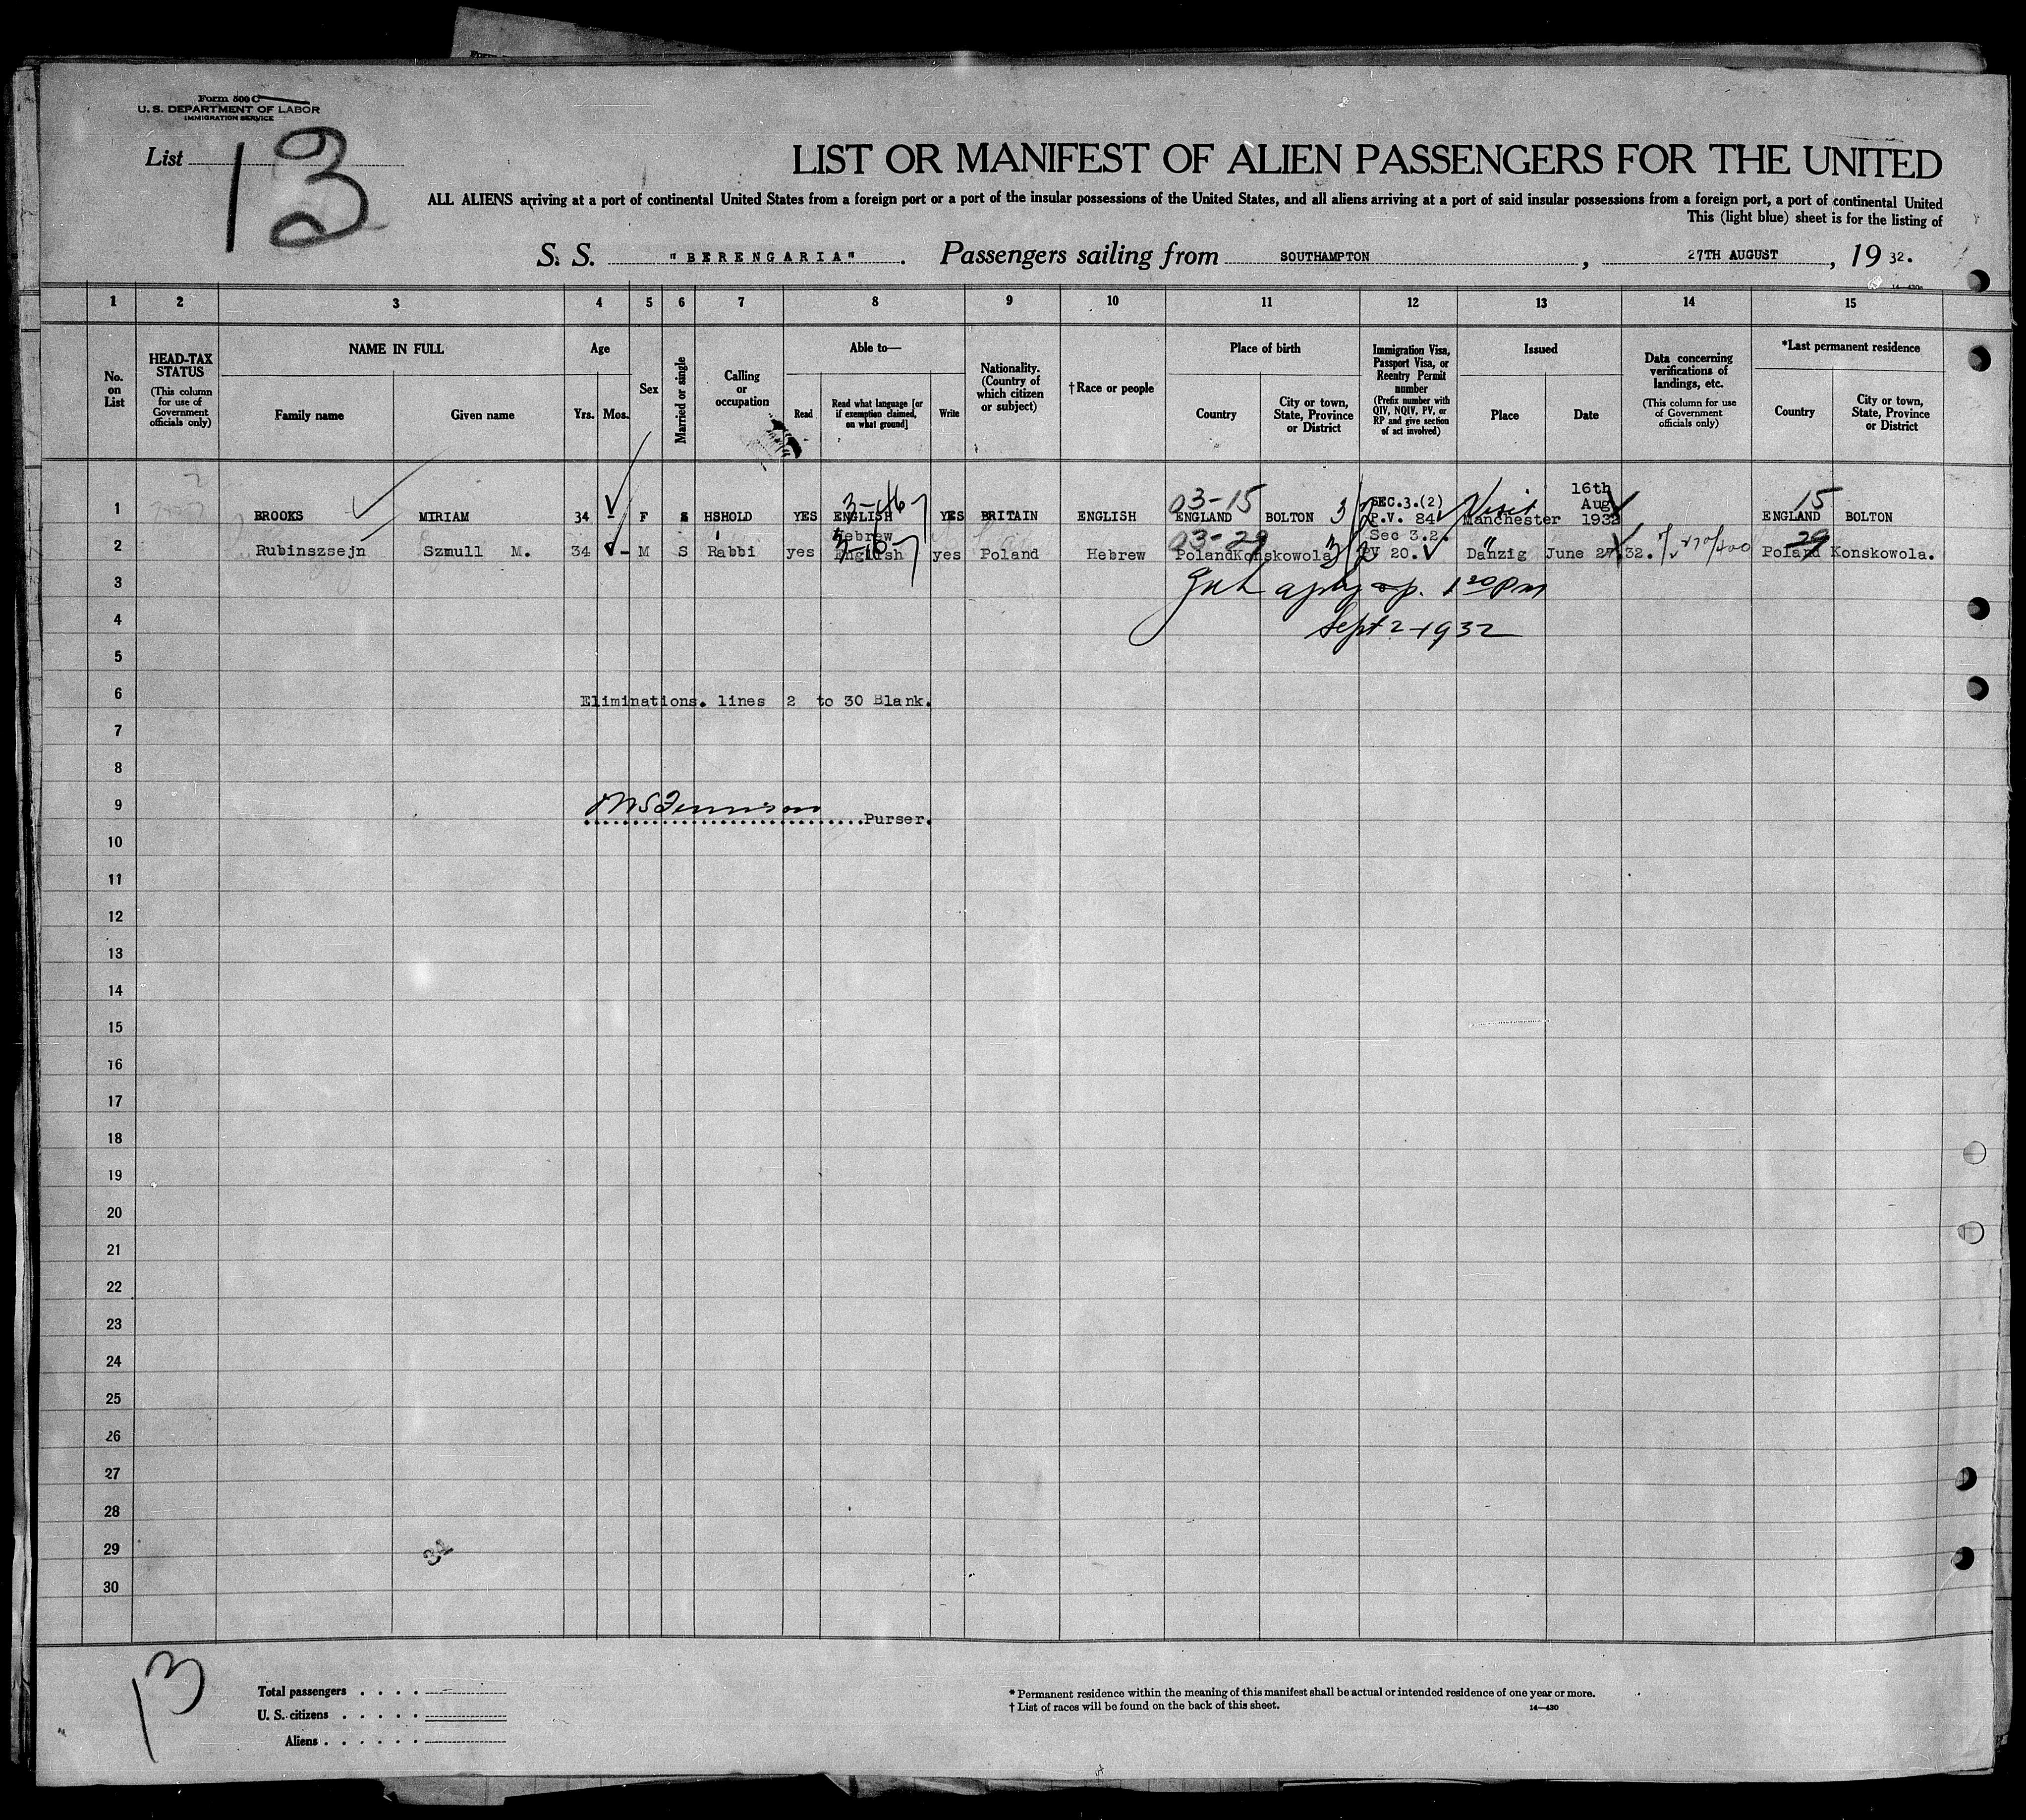 Form 500 C
U. S. DEPARTMENT OF LABOR
IMMIGRATION SERVICE
List 13
LIST OR MANIFEST OF ALIEN PASSENGERS FOR THE UNITED
ALL ALIENS arriving at a port of continental United States from a foreign port or a port of the insular possessions of the United States, and all aliens arriving at a port of said insular possessions from a foreign port, a port of continental United
This (light blue) sheet is for the listing of
S. S. "BERENGARIA". Passengers sailing from SOUTHAMPTON, 27TH AUGUST, 19 32.
1 2 3 4 5 6 7 8 9 10 11 12 13 14 15
No. on List
HEAD-TAX STATUS
(This column for use of Government officials only)
NAME IN FULL
Family name Given name
Age
Yrs. Mos.
Sex
Married or single
Calling or occupation
Able to—
Read
Read what language [or if exemption claimed, on what ground]
Write
Nationality. (Country of which citizen or subject)
†Race or people
Place of birth
Country
City or town, State, Province or District
Immigration Visa, Passport Visa, or Reentry Permit number
(Prefix number with QIV, NQIV, PV, or RP and give section of act involved)
Issued
Place Date
Data concerning verifications of landings, etc.
(This column for use of Government officials only)
*Last permanent residence
Country
City or town, State, Province or District
03-15 SEC.3.(2) Visit 16th Aug 15
1 BROOKS MIRIAM 34 - F S HSHOLD YES ENGLISH YES BRITAIN ENGLISH ENGLAND BOLTON P.V. 84 Manchester 1932 ENGLAND BOLTON
Hebrew 03-29 Sec 3.2. 29
2 Rubinszsejn Szmull M. 34 - M S Rabbi yes English yes Poland Hebrew Poland Konskowola PV 20. Danzig June 27.32. Poland Konskowola.
3
4 Sept 2-1932
5
6 Eliminations. lines 2 to 30 Blank.
7
8
9 Purser.
10
11
12
13
14
15
16
17
18
19
20
21
22
23
24
25
26
27
28
29
30
13
Total passengers
U. S. citizens
Aliens
* Permanent residence within the meaning of this manifest shall be actual or intended residence of one year or more.
† List of races will be found on the back of this sheet.
14—430